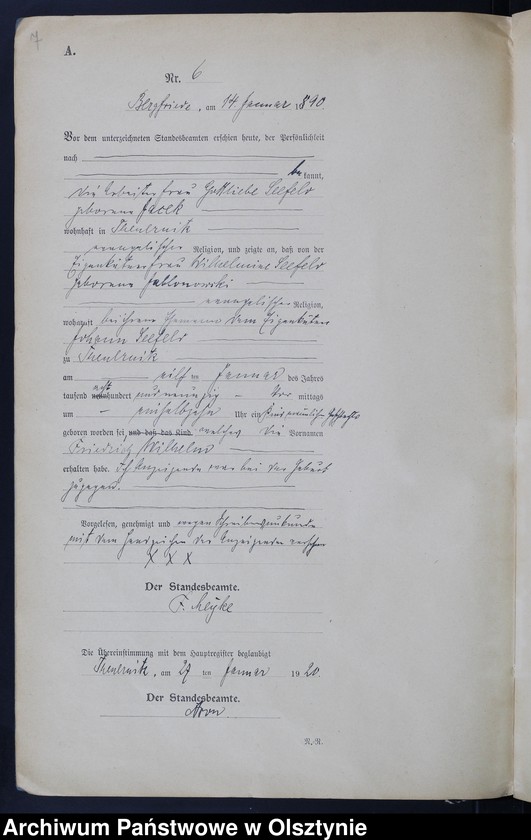 7
A.
Nr. 6
Bergfriede, am 14. Januar 1890.
Vor dem unterzeichneten Standesbeamten erschien heute, der Persönlichkeit
nach
bekannt,
die Arbeiterfrau Gottliebe Seefeld
geborene Jacek
wohnhaft in Theuernitz
evangelischer Religion, und zeigte an, daß von der
Eigenkäthnerfrau Wilhelmine Seefeld
geborene Jablonowski
evangelischer Religion,
wohnhaft bei ihrem Ehemann dem Eigenkäthner
Johann Seefeld
zu Theuernitz
am elften Januar des Jahres
tausend achthundert und neunzig Vor mittags
um Uhr ein Kind männlichen Geschlechts
geboren worden sei, und daß das Kind welches die Vornamen
Friedrich Wilhelm
erhalten habe. Anzeigende war bei der Geburt
zugegen.
Vorgelesen, genehmigt und wegen Schreibensunkunde
mit dem Handzeichen der Anzeigenden versehen
X X X
Der Standesbeamte.
F.
Die Übereinstimmung mit dem Hauptregister beglaubigt
Theuernitz, am 27 ten Januar 1920.
Der Standesbeamte.
Aron
N.-R.
Archiwum Państwowe w Olsztynie